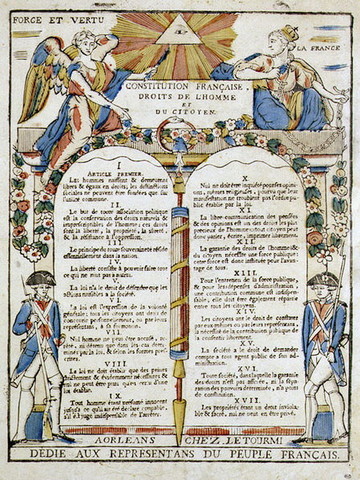 FORCE ET VERTU
LA FRANCE
CONSTITUTION FRANÇAISE.
DROITS DE L'HOMME
ET
DU CITOYEN.
I
ARTICLE PREMIER.
Les hommes naissent & demeurent
libres & égaux en droits; les distinctions
sociales ne peuvent être fondées que sur
l'utilité commune.
II.
Le but de toute association politique
est la conservation des droits naturels &
imprescriptibles de l'homme; ces droits
sont la liberté, la propriété, la sûreté,
& la résistance à l'oppression.
III.
Le principe de toute souveraineté réside
essentiellement dans la nation.
IV.
La liberté consiste à pouvoir faire tout
ce qui ne nuit pas à autrui.
V.
La loi n'a le droit de défendre que les
actions nuisibles à la société.
VI.
La loi est l'expression de la volonté
générale; tous les citoyens ont droit de
concourir personnellement, ou par leurs
représentans, à sa formation.
VII.
Nul homme ne peut être accusé, arrêté,
ni détenu que dans les cas déterminés
par la loi, & selon les formes prescrites.
VIII.
La loi ne doit établir que des peines
strictement & évidemment nécessaires &
nul ne peut être puni qu'en vertu d'une
loi établie.
IX
Tout homme étant présumé innocent
jusqu'à ce qu'il ait été déclaré coupable,
s'il est jugé indispensable de l'arrêter.
X.
Nul ne doit être inquiété pour ses opinions,
mêmes religieuses, pourvu que leur
manifestation ne troublent pas l'ordre public
établie par la loi.
XI.
La libre communication des pensées
& des opinions est un des droits les plus
précieux de l'homme: tout citoyen peut
donc parler, écrire, imprimer librement.
XII.
La garantie des droits de l'homme & du
citoyen nécessite une force publique:
cette force est donc instituée pour l'avantage
de tous.
XIII.
Pour l'entretien de la force publique,
& pour les dépenses d'administration,
une contribution commune est indispensable,
elle doit être également répartie
entre tous les citoyens.
XIV.
Les citoyens ont le droit de constater
par eux mêmes ou par leurs représentans,
la nécessité de la contribution publique
XV.
La société a le droit de demander
compte à tout agent public de son administration.
XVI.
Toute société, dans laquelle la garantie
des droits n'est pas assurée, ni la séparation
des pouvoirs déterminée, n'a point
de constitution.
XVII.
Les propriétés étant un droit inviolable
& sacré, nul ne peut en être privé.
A ORLEANS CHEZ LETOURMI
DÉDIÉ AUX REPRESENTANS DU PEUPLE FRANÇAIS.